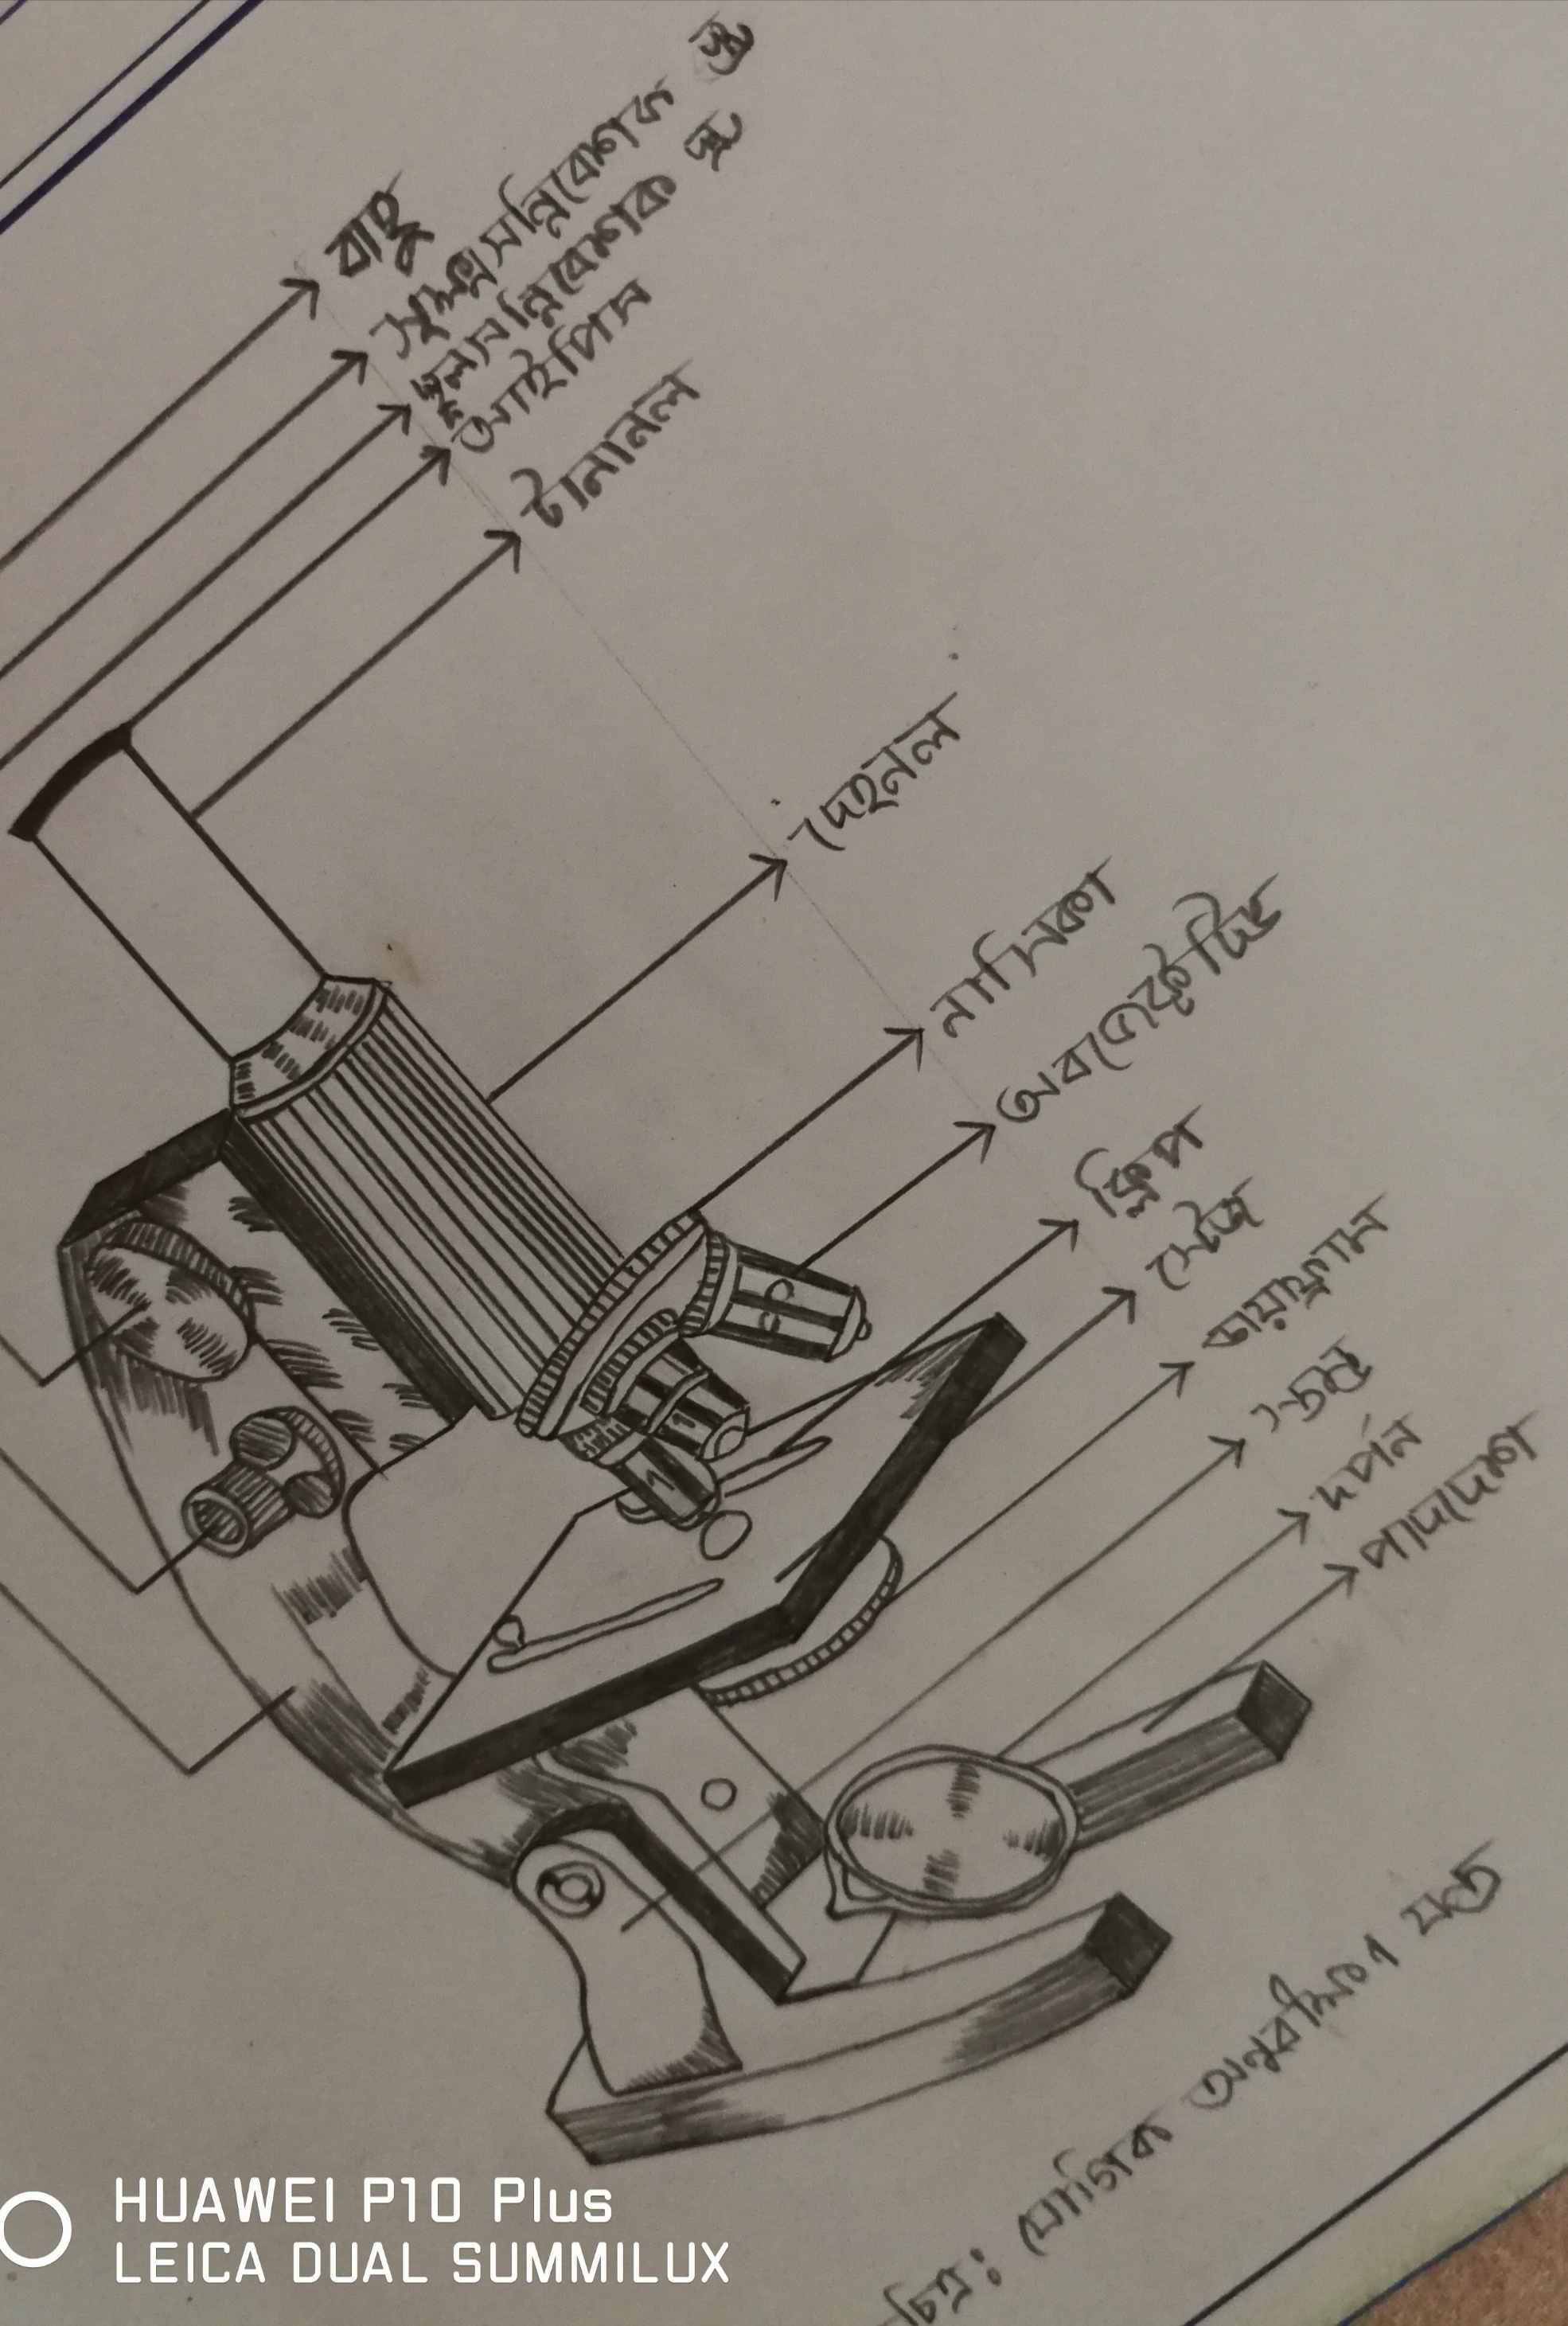 বাহু
সূক্ষ্মসন্নিবেশক স্ক্রু
স্থূলসন্নিবেশক স্ক্রু
আইপিস
টানানল
দেহনল
নাসিকা
অবজেকটিভ
ক্লিপ
স্টেজ
ডায়াফ্রাম
স্তম্ভ
দর্পন
পাদদেশ
চিত্র: যৌগিক অনুবীক্ষণ যন্ত্র
HUAWEI P10 Plus
LEICA DUAL SUMMILUX